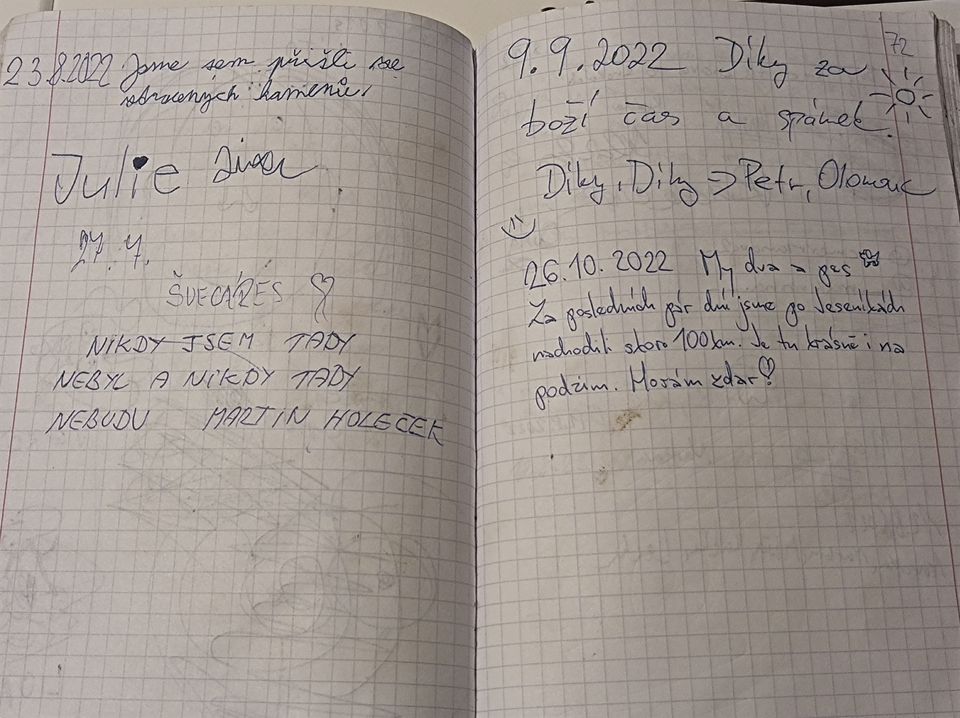 23.8.2022 Jsme sem přišli ze
obrácených kamenů.
Julie
27.7.
ŠVECÁŘES
NIKDY JSEM TADY
NEBYL A NIKDY TADY
NEBUDU MARTIN HOLEČEK
72
9.9.2022 Díky za
boží čas a spánek.
Díky, Díky => Petr, Olomouc
26.10.2022 My dva a pes
Za posledních pár dní jsme po Jeseníkách
nachodili skoro 100km. Je tu krásně i na
podzim. Horám zdar!